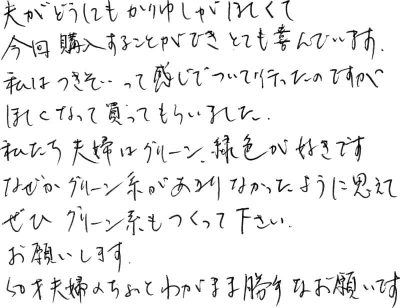 夫がどうにもかりゆしがほしくて
今回購入することができとても喜んでいます.
私はつきそいって感じでついて行ったのですが
ほしくなって買ってもらいました.
私たち夫婦はグリーン、緑色が好きです
なぜかグリーン系があまりなかったように思えて
ぜひグリーン系もつくって下さい.
お願いします.
50才夫婦のちょっとわがまま勝手なお願いです